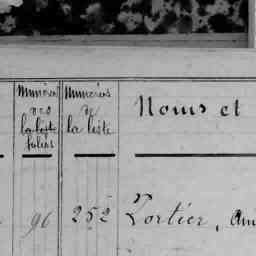 Numéros des la liste
Numéros de la liste
Noms et
96 252 Lortier, Am